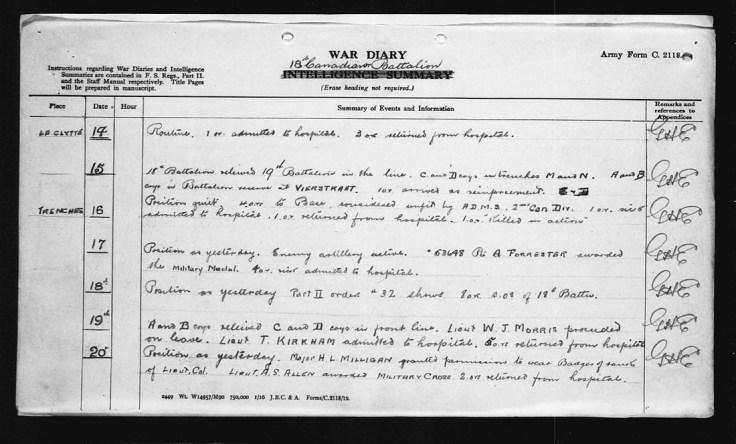 WAR DIARY
18th Canadian or Battalion
INTELLIGENCE SUMMARY
(Erase heading not required.)
Army Form C. 2118.
Instructions regarding War Diaries and Intelligence
Summaries are contained in F. S. Regs., Part II.
and the Staff Manual respectively. Title Pages
will be prepared in manuscript.
Place Date Hour Summary of Events and Information Remarks and references to Appendices
LA CLYTTE 14 Routine. 1 or admitted to hospital. 3 ors returned from hospital. GHE
15 18th Battalion relieved 19th Battalion in the line. C and D coys in trenches M and N. A and B
coys in Battalion reserve at VIERSTRAAT. 1 or arrived as reinforcement. GHE
TRENCHES 16 Position quiet. 4 ors to Base, considered unfit by A.D.M.S. 2nd Can Div. 1 or sick
admitted to hospital. 1 or returned from hospital. 1 or "Killed in action" GHE
17 Position as yesterday. Enemy artillery active. 53648 Pte A. FORRESTER awarded
the Military Medal. 4 or sick admitted to hospital. GHE
18th Position as yesterday Part II orders #32 shows 1 or S.O.S of 18th Battn. GHE
19th A and B coys relieved C and D coys in front line. Lieut W. J. MORRIS proceeded
on leave. Lieut T. KIRKHAM admitted to hospital. 5 ors returned from hospital GHE
20 Position as yesterday. Major H. L. MILLIGAN granted permission to wear Badges of rank
of Lieut. Col. LIEUT. A. S. ALLEN awarded MILITARY CROSS. 2 ors returned from hospital. GHE
2449 Wt. W14957/M90 750,000 1/16 J.B.C. & A. Forms/C.2118/12.